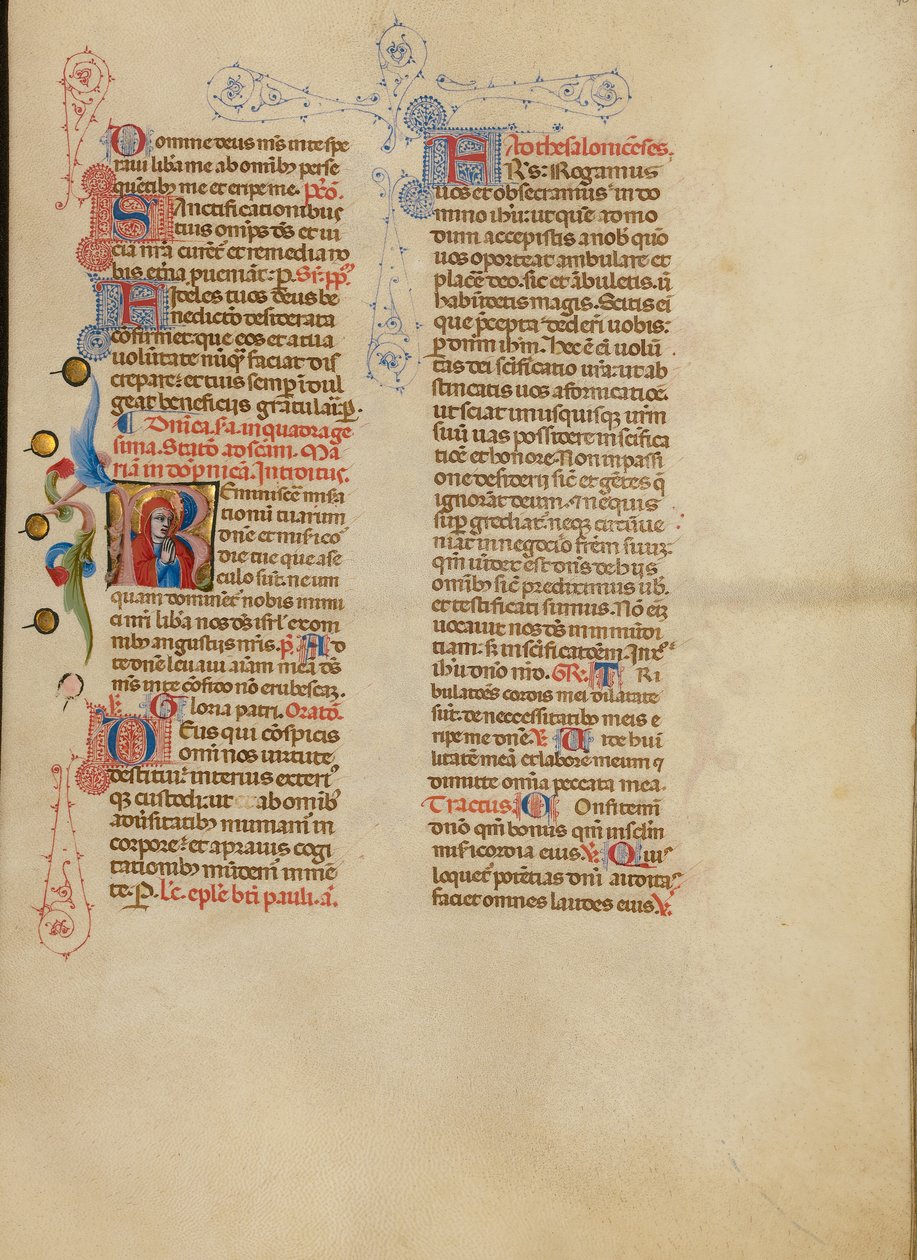 Domine deus ms̄ in te spe
raui liƀa me ab omīb; perse
quētib; me et eripe me. P̄cō.
Sanctificationibus
tuis omīps d̄s et ui
cia nr̄a curēt᷑ et remedia no
bis etn̄a ꝓueniāt. P. Sr̄. pp̄m̄.
Fideles tuos deus be
nedictio desiderata
confirmet. que eos et a tua
uolūtate nūq̄ faciat dis
crepare: et tuis semꝑ īdul
geat beneficijs gr̄atulari. P.
¶ Dn̄ica .ij.a. in quadrage
sima. Statō ad scām. Ma
riam in dōpnicā. Introitus.
Reminiscē mis̄a
tionū tuarum
dn̄e et mis̄ico
die tue que a se
culo sūt. ne um
quam dominēt᷑ nobis inimi
ci nr̄i liƀa nos d̄s isr̄l ex om
nib; angustijs nr̄is. p̄. Ad
te dn̄e leuaui aīam meā d̄s
ms̄ in te cōfido nō erubescā.
℣. Gloria patri. Oratō.
Deus qui cōspicis
omni nos uirtute
destitui: interius exteri⁹
q; custodi: ut ab omīb;
aduersitatib; muniam̄ in
corpore: et a prauis cogi
tationib; mūdem̄ in mē
te. P. Lc̄. ep̄le bt̄i pauli. a.
Ad thesalonicēses.
Fr̄s: Rogamus
uos et obsecramus in do
mino ih̄u: ut quē admo
dum accepistis a nob̄ quō
uos oporteat ambulare et
placē᷑e deo. sic et ābuletis. ut
habūdetis magis. Scitis eī
que p̄cepta dederī uobis:
ꝑ dn̄m ih̄m. Hec ē eī uolū
tas dei sc̄ificatio ur̄a: ut ab
stineatis uos a fornicatiōe.
ut sciat unusquisq; ur̄m
suū uas possidere in sc̄ifica
tiōe et honore. Non in passi
one desiderij sic̄ et gētes q̄
ignorāt deum. Et nequis
suꝑgrediat᷑. neq; circūue
niat in negocio fr̄em suum:
qm̄ uindex est dn̄s de hijs
omīb; sic̄ prediximus uob̄.
et testificati sumus. Nō enī
uocauit nos d̄s in inmūdi
tiam: s; in sc̄ificatōem. In xp̄o
ih̄u dn̄o nr̄o. GR. Tri
bulatōes cordis mei dilatate
sūt. de neccessitatib; meis e
ripe me dn̄e. ℣. Vide humi
litatē meā et labore meum ⁊
dimitte om̄ia peccata mea.
Tractus. Confitemī
dn̄o qm̄ bonus qm̄ in sc̄lm
mis̄icordia eius. ℣. Quis
loquet᷑ potētias dn̄i auditas
faciet omnes laudes eius. ℣.